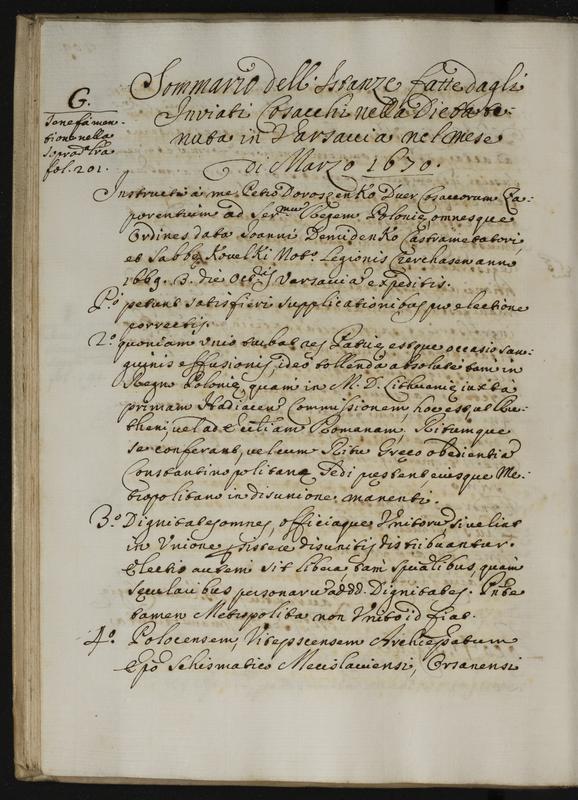 G.
Se ne fà men-
tione nella
soprad.ª Tra
fol. 201.
Sommario dell' Istanze fatte dagli
Inviati Cosacchi nella Dieta te-
nuta in Varsavia nel mese
di Marzo 1670.
Instructio à me Petro Doroszenko Duce Cosaccorum Za-
porentium ad Ser.mum Regem Polonię, omnesque
Ordines data Joanni Demidenko Castrametatori,
et Sabbę Kovelki Not.º Legionis Czerchasen anno
1669. 3. die Oct.
Varsavia expeditis.
P.º petunt satisfieri supplicationibus pro electione
porrectis.
2.º quoniam Unio turbat res Patrię, estque occasio san-
guinis effusionis, ideo tollenda absolute tam in
Regno Polonię, quam in M. D. Lithuanię iuxta
primam Hadiacen Commissionem, hoc est, ut Ru-
theni, vel ad Ecclīam Romanam, Ritumque
se conferant, vel cum Ritu Gręco obedientia
Constantinopolitanę Sedi pręstent, eiusque Me-
tropolitano in disunione manenti.
3.º Dignitates omnes, officiaque Unitorū, sive
in Unione existere disunitis distribuantur.
Electio autem sit libera, tam spūalibus, quam
sęcularibus personarū ad dd. Dignitates. Pńte
tamen Metropolita non Unito id fiat.
4.º Polocensem, Vitepscensem Archiepatum
Epō Schismatico Mecislaviensi, Orsanensi